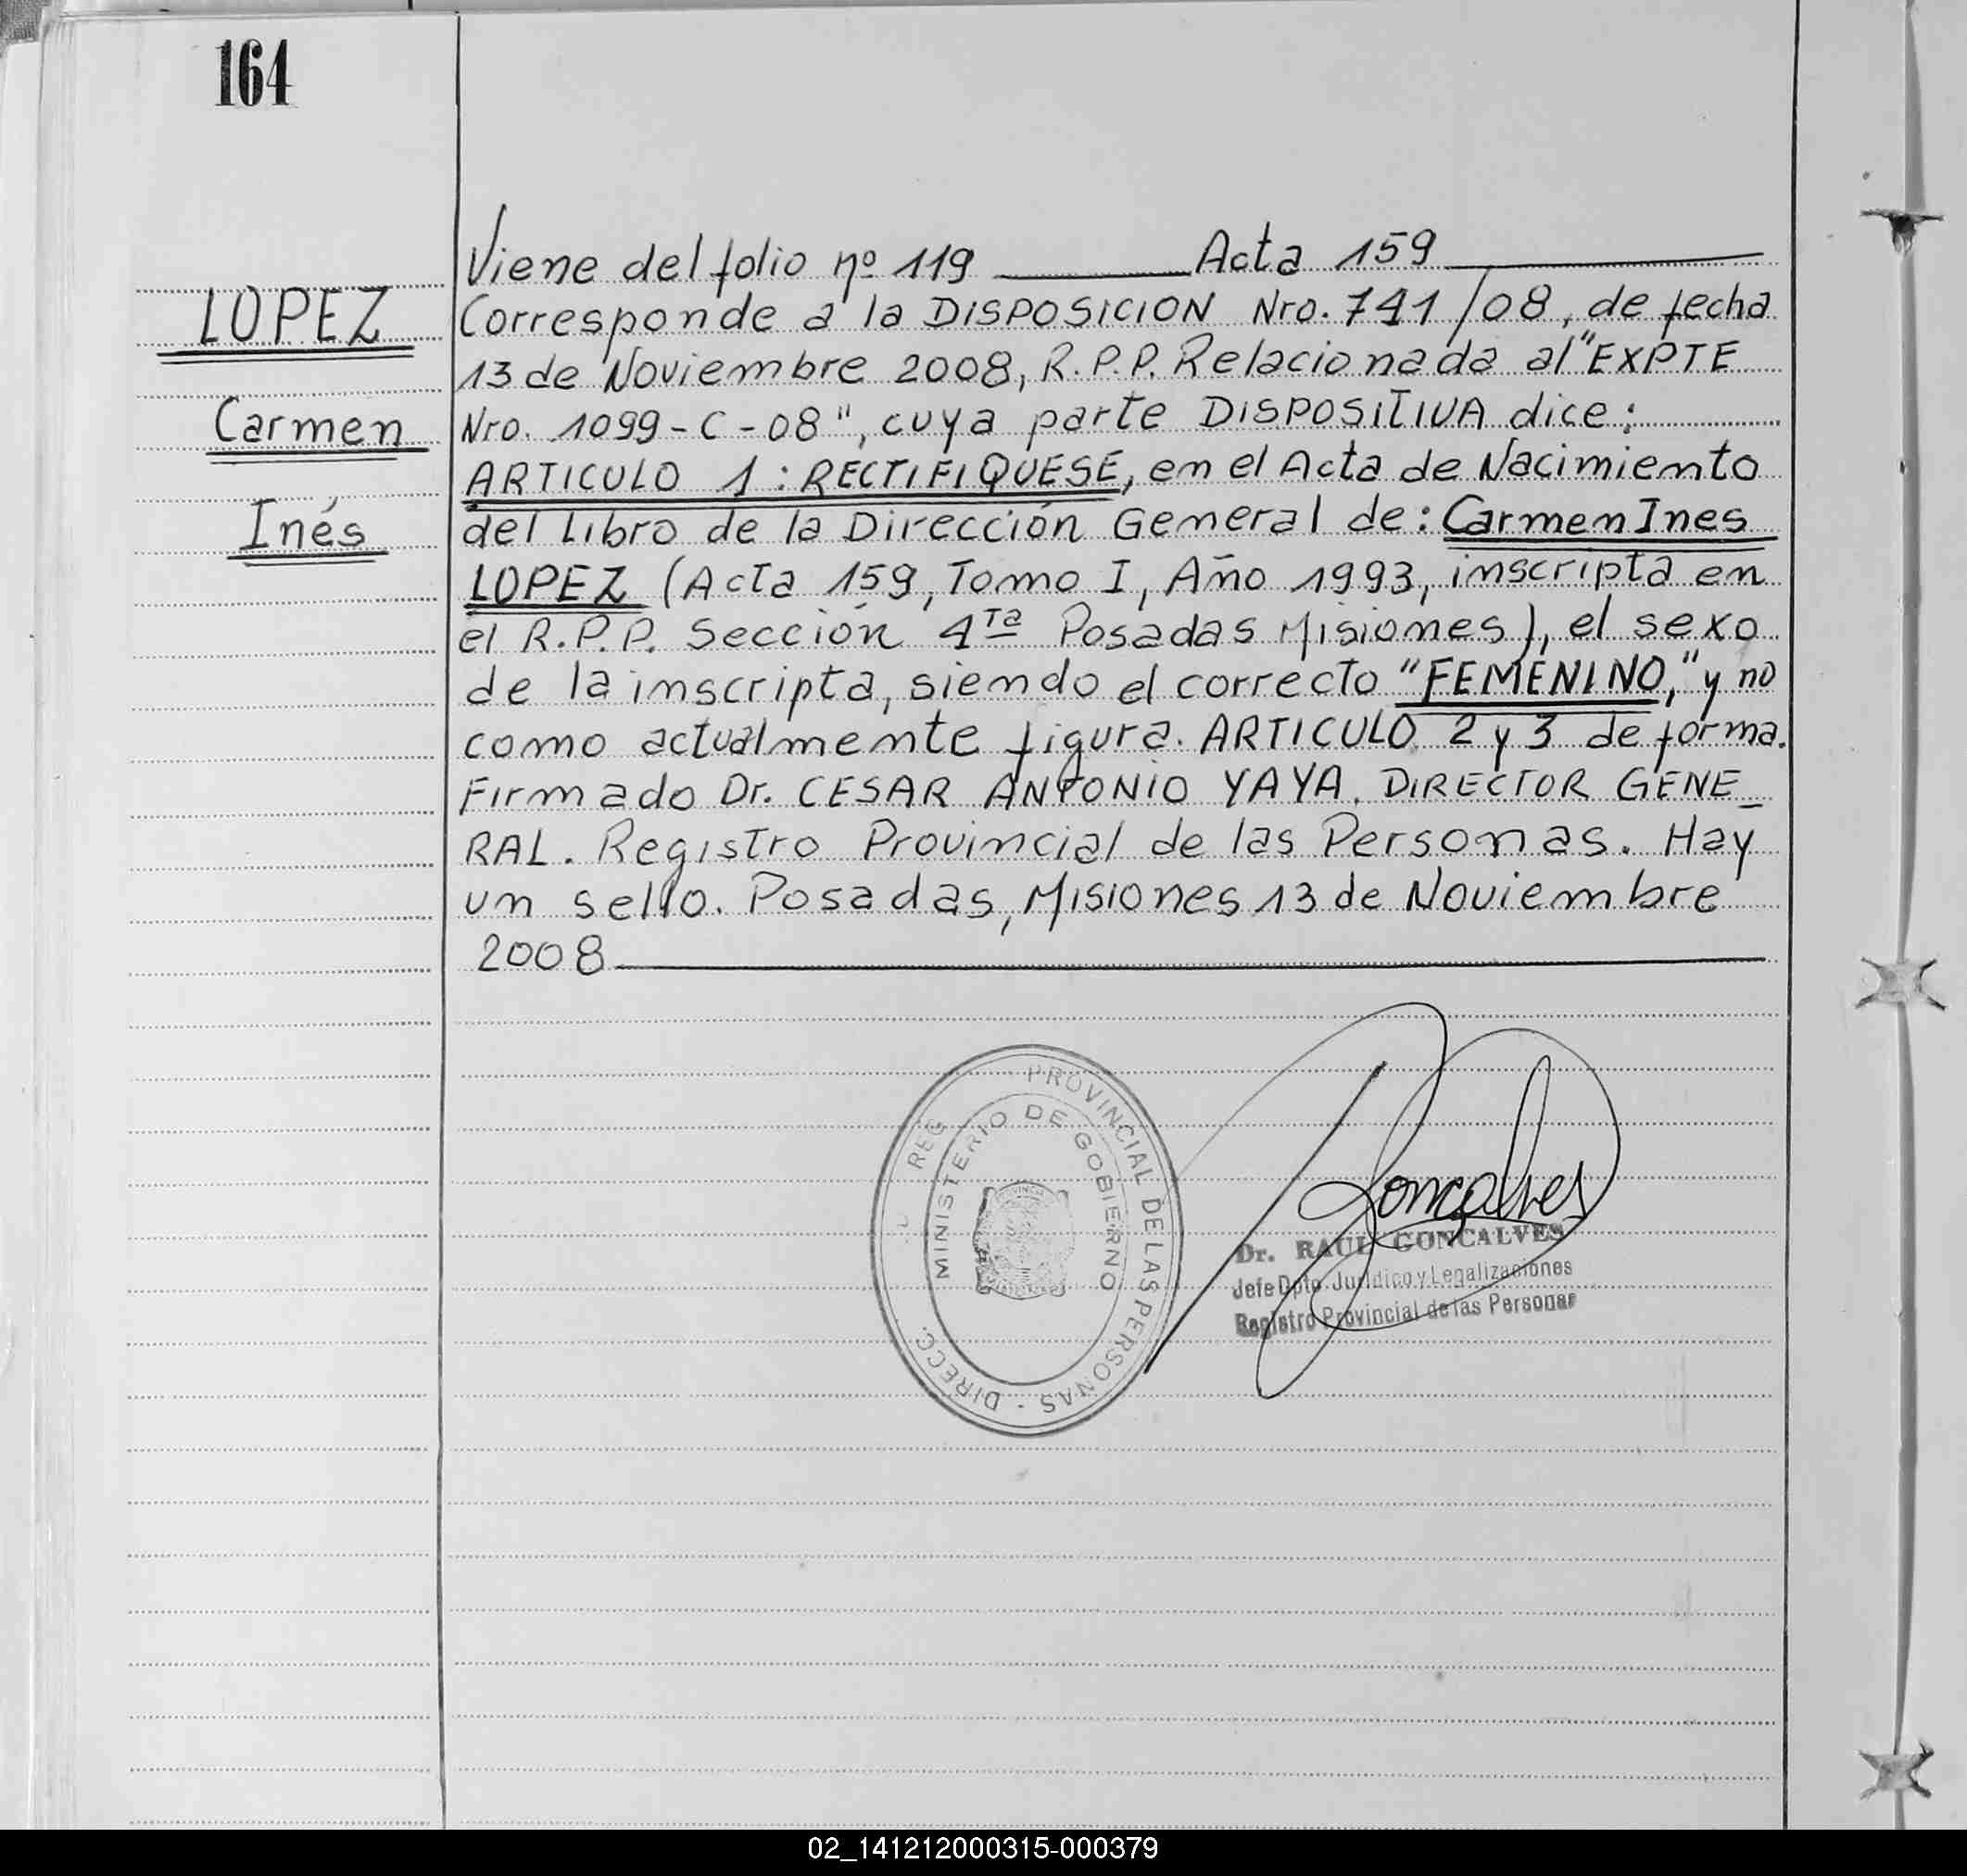 164
LOPEZ
Carmen
Inés
Viene del folio nº 119 Acta 159
Corresponde a la DISPOSICION Nro. 741/08, de fecha
13 de Noviembre 2008, R.P.P. Relacionada al "EXPTE
Nro. 1099-C-08", cuya parte DISPOSITIVA dice:
ARTICULO 1: RECTIFIQUESE, en el Acta de Nacimiento
del Libro de la Dirección General de: Carmen Ines
LOPEZ (Acta 159, Tomo I, Año 1993, inscripta en
el R.P.P. Sección 4ta Posadas Misiones), el sexo
de la inscripta, siendo el correcto "FEMENINO," y no
como actualmente figura. ARTICULO 2 y 3 de forma.
Firmado Dr. CESAR ANTONIO YAYA. DIRECTOR GENE_
RAL. Registro Provincial de las Personas. Hay
un sello. Posadas, Misiones 13 de Noviembre
2008
DIRECC. REG PROVINCIAL DE LAS PERSONAS -
MINISTERIO DE GOBIERNO
Goncalves
Dr. RAUL GONCALVES
Jefe Dpto. Jurídico y Legalizaciones
Registro Provincial de las Personas
02_141212000315-000379